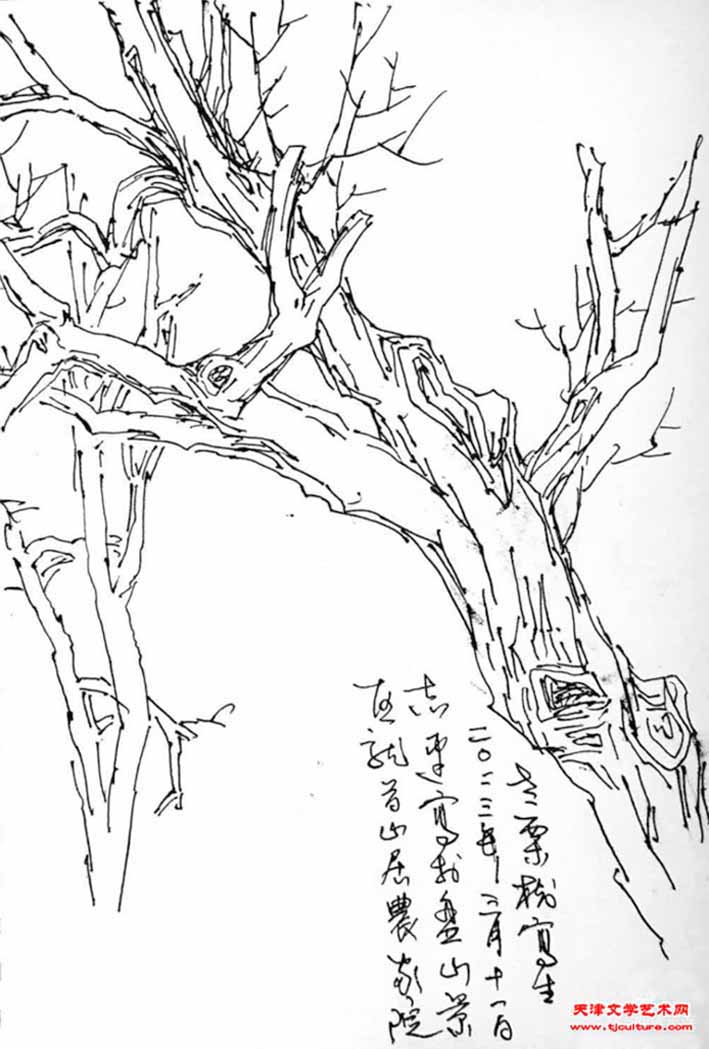 老栗树寫生
二〇二三年二月十一日
志운寫於盘山景
区龍首山居農家院
天津文学艺术网
www.tjculture.com